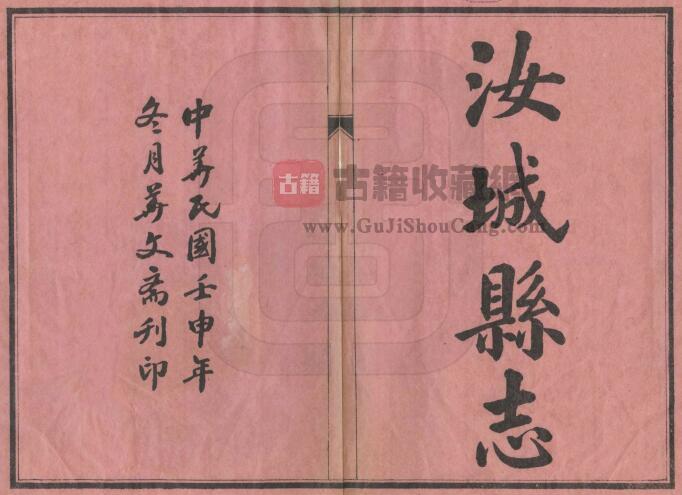 汝城縣志
中華民國壬申年
冬月華文齋刊印
古籍
古籍收藏網
www.GuJiShouCang.com